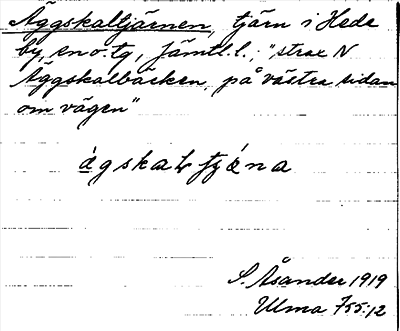 Äggskaltjärnen, tjärn i Hede
by, en o. tg, Jämtl. l.; "strax N
Äggskalbäcken, på västra sidan
om vägen"
S. Åsander 1919
Ulma 755:12